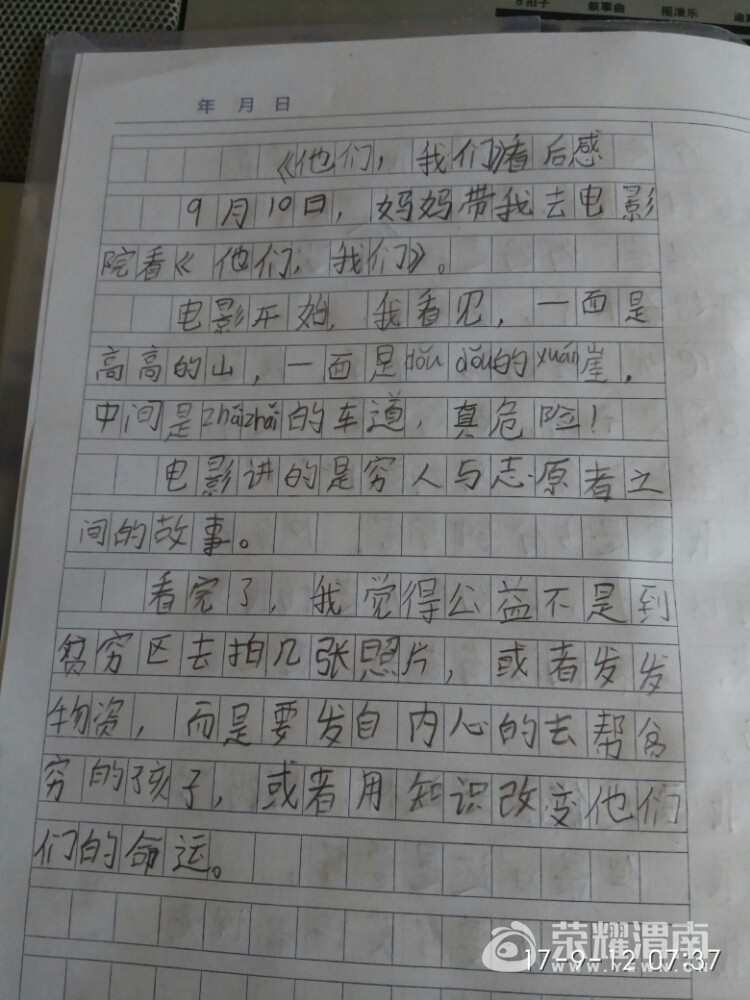 8拍子 叙事曲 摇滚乐
年 月 日
《他们，我们》看后感
9月10日，妈妈带我去电影
院看《他们，我们》。
电影开始，我看见，一面是
高高的山，一面是dǒu dǒu的xuán崖，
中间是zhǎizhǎi的车道，真危险！
电影讲的是穷人与志原者之
间的故事。
看完了，我觉得公益不是到
贫穷区去拍几张照片，或者发发
物资，而是要发自内心的去帮贫
穷的孩子，或者用知识改变他们
们的命运。
荣耀渭南
17-9-12 07:37